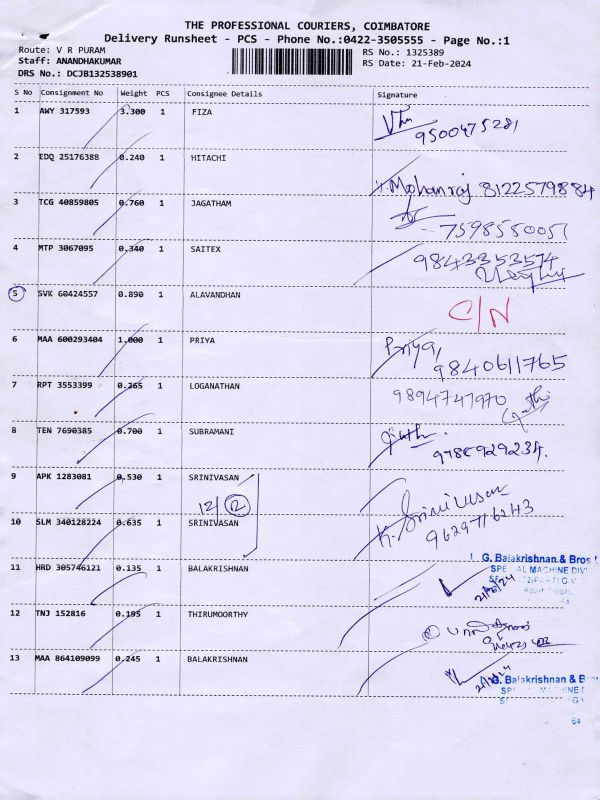 THE PROFESSIONAL COURIERS, COIMBATORE
Delivery Runsheet - PCS - Phone No.:0422-3505555 - Page No.:1
Route: V R PURAM
RS No.: 1325389
Staff: ANANDHAKUMAR
RS Date: 21-Feb-2024
DRS No.: DCJB132538901
S No Consignment No Weight PCS Consignee Details Signature
1 AWY 317593 3.300 1 FIZA
9500475281
2 EDQ 25176388 0.240 1 HITACHI
Mohanraj 8122579884
3 TCG 40859805 0.760 1 JAGATHAM
7598550051
4 MTP 3067095 0.340 1 SAITEX
9843353574
5 SVK 60424557 0.890 1 ALAVANDHAN
C/N
6 MAA 600293404 1.000 1 PRIYA
Priya,
9840611765
7 RPT 3553399 0.265 1 LOGANATHAN
9894747970
8 TEN 7690385 0.700 1 SUBRAMANI
9 APK 1283081 0.530 1 SRINIVASAN
12/ 2
K. Srinivasan
9629716243
10 SLM 340128224 0.635 1 SRINIVASAN
11 HRD 305746121 0.135 1 BALAKRISHNAN
G. Balakrishnan & Bros
12 TNJ 152816 0.195 1 THIRUMOORTHY
13 MAA 864109099 0.245 1 BALAKRISHNAN
G. Balakrishnan & B